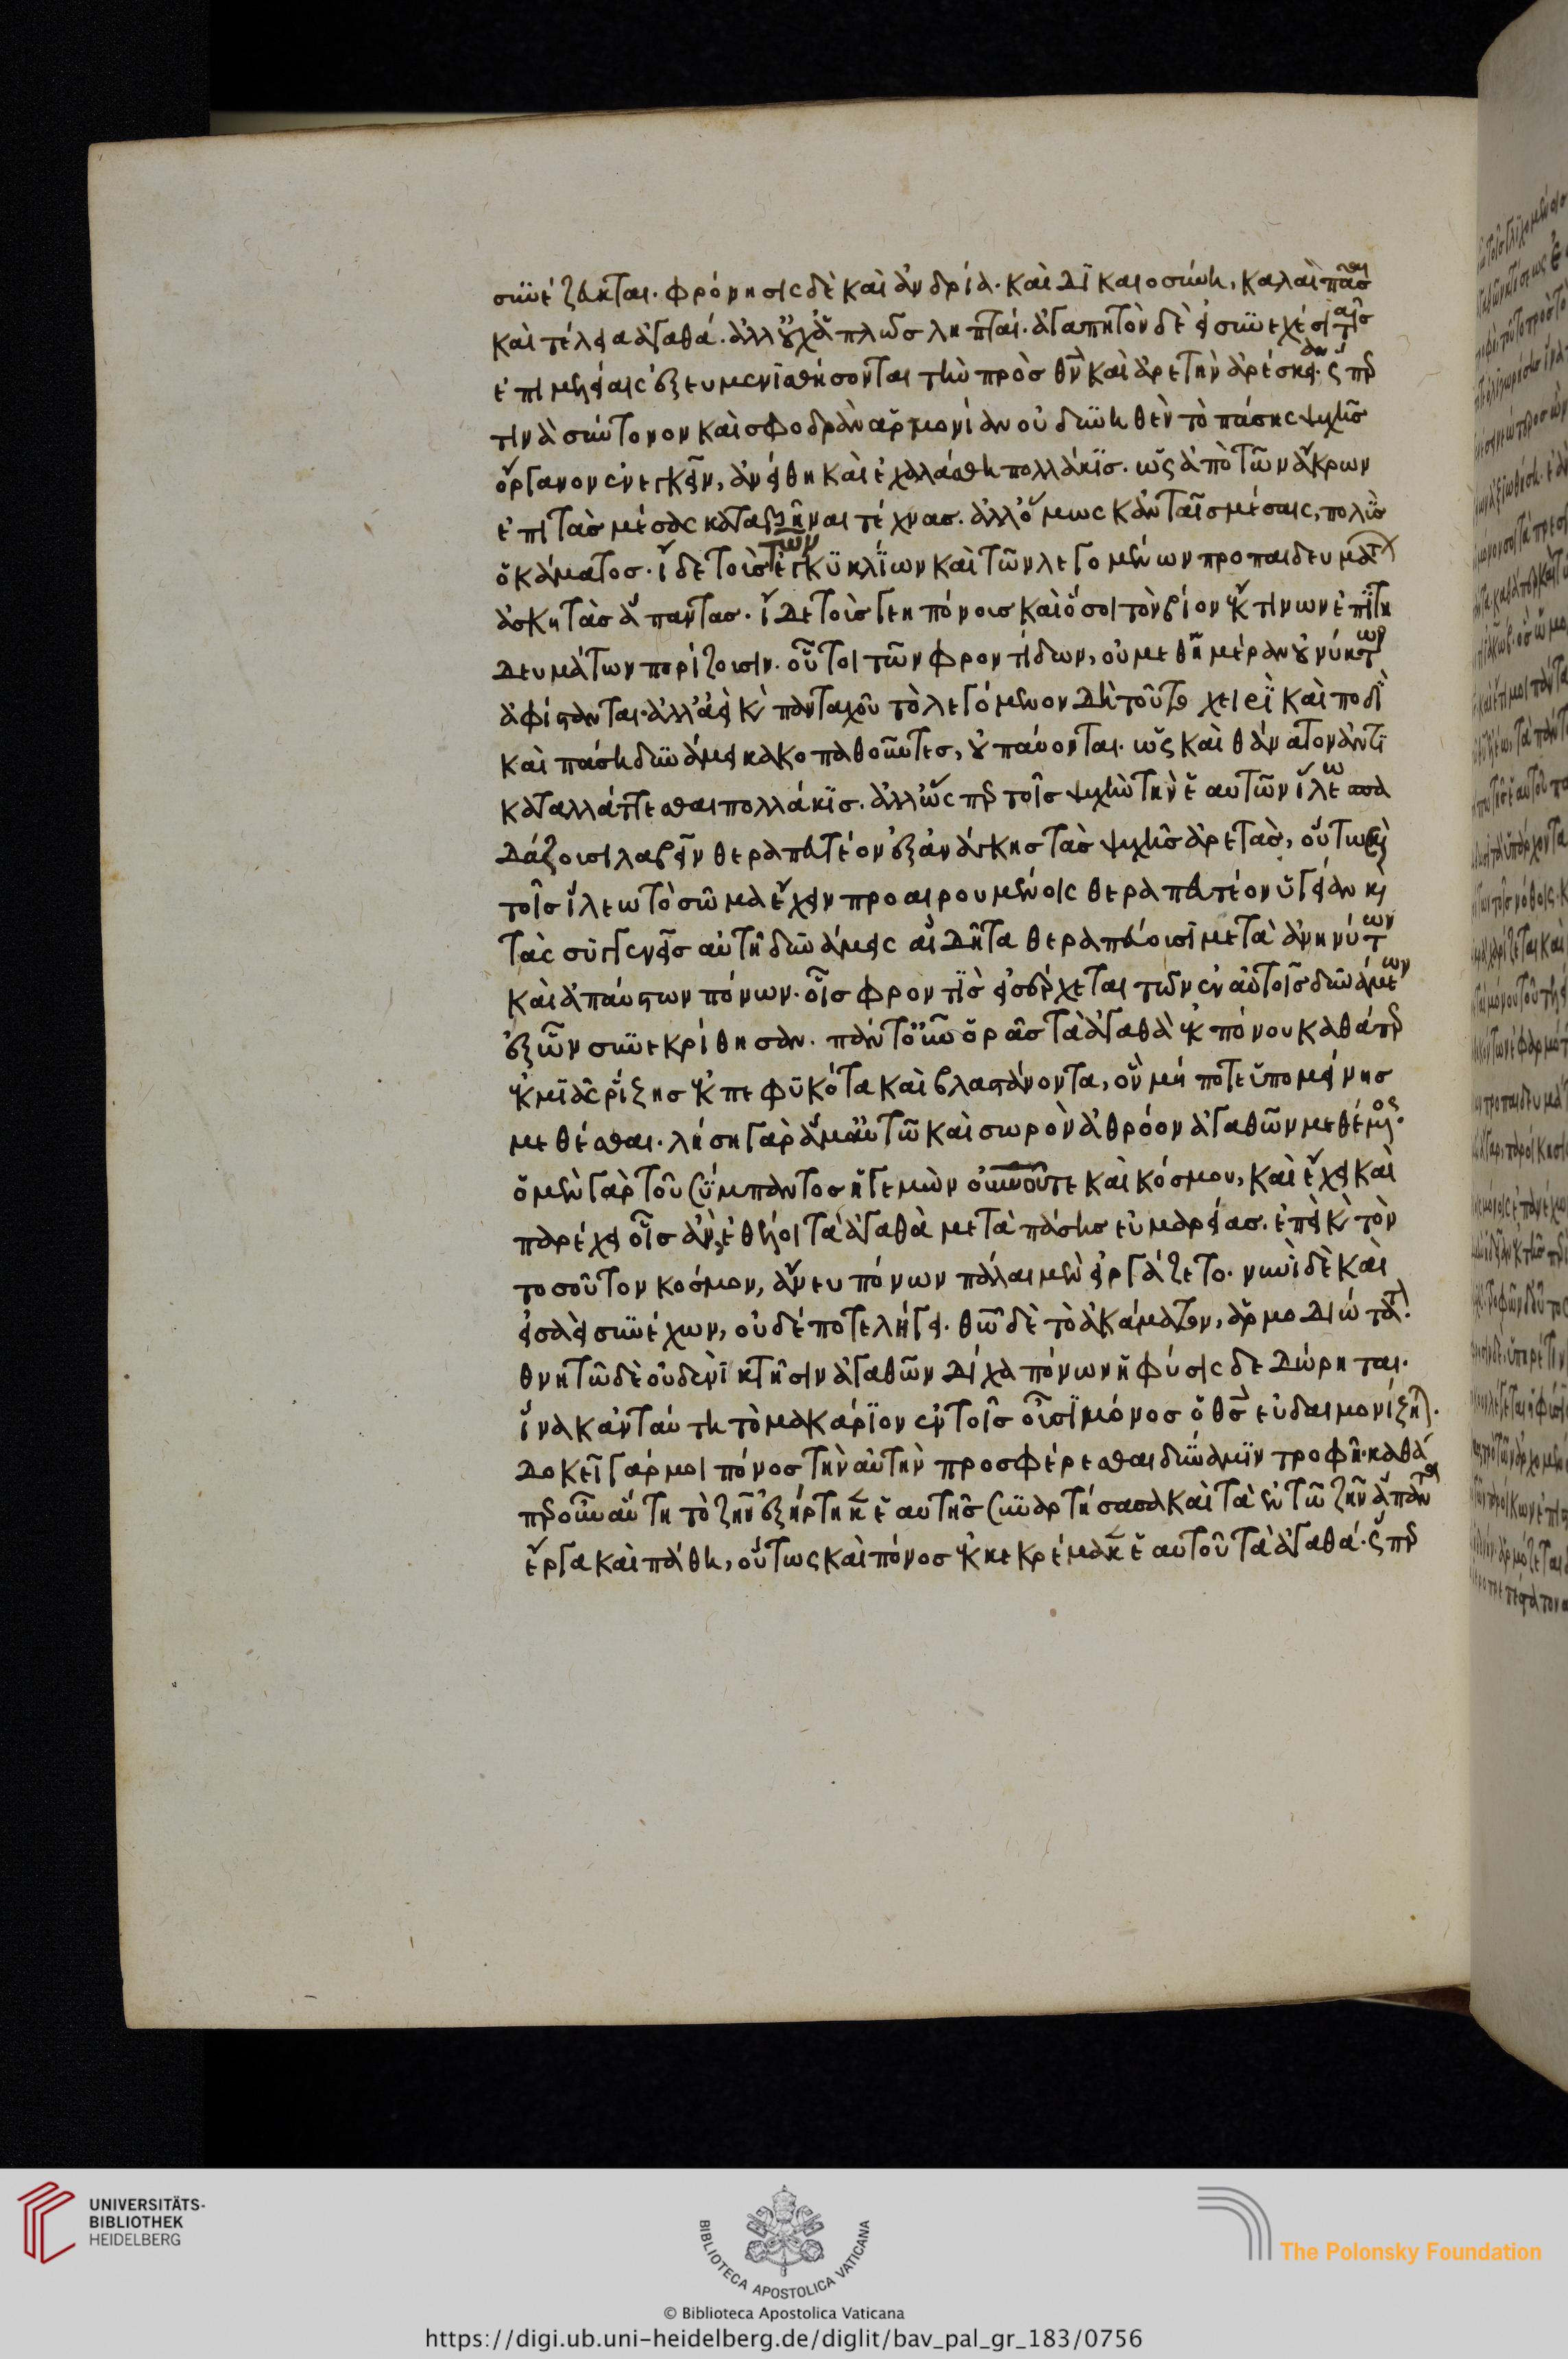 συνέζευκται. φρόνησις δὲ καὶ ἀνδρία. καὶ δικαιοσύνη, καλαὶ πᾶσαι
καὶ τέλεια ἀγαθά. ἀλλ' οὐχ' ἁπλῶς ληπταί. ἀγαπητὸν δὲ εἰ συνεχέσι ταῖς
ἐπιμελείαις ἐξευμενισθήσονται τὴν πρὸς θν̅ καὶ ἀρετὴν ἀρέσκειαν. ὥσπερ
τινὰ σύντονον καὶ σφοδρὰν ἁρμονίαν οὐ δυνηθὲν τὸ πάσης ψυχῆς
ὄργανον ἐνεγκεῖν, ἀνείθη καὶ ἐχαλάσθη πολλάκις. ὡς ἀπὸ τῶν ἄκρων
ἐπὶ τὰς μέσας καταβῆναι τέχνας. ἀλλ' ὅμως κἀν ταῖς μέσαις, πολὺς
ὁ κάματος. ἴδε τοὺς τῶν ἐγκυκλίων καὶ τῶν λεγομένων προπαιδευμάτων
ἀσκητὰς ἅπαντας. ἴδε τοὺς γεηπόνους καὶ ὅσοι τὸν βίον ἔκ τινων ἐπιτη
δευμάτων πορίζουσιν. οὗτοι τῶν φροντίδων, οὐ μεθ' ἡμέραν οὐ νύκτωρ
ἀφίστανται. ἀλλ' ἀεὶ καὶ πανταχοῦ τὸ λεγόμενον δὴ τοῦτο χειρὶ καὶ ποδὶ
καὶ πάσῃ δυνάμει κακοπαθοῦντες, οὐ παύονται. ὡς καὶ θάνατον ἀντι
καταλλάττεσθαι πολλάκις. ἀλλ' ὥσπερ τοῖς ψυχὴν τὴν ἑαυτῶν ἵλεω σπου
δάζουσι λαβεῖν θεραπευτέον ἐξανάγκης τὰς ψυχῆς ἀρετὰς, οὕτω καὶ
τοῖς ἵλεω τὸ σῶμα ἔχειν προαιρουμένοις θεραπευτέον ὑγείαν καὶ
τὰς συγγενεῖς αὐτῇ δυνάμεις αἳ δῆτα θεραπεύουσι μετὰ ἀνηνύτων
καὶ ἀπαύστων πόνων. οἷς φροντὶς εἰσέρχεται τῶν ἐν αὐτοῖς δυνάμεων
ἐξ ὧν συνεκρίθησαν. πάντ' οὖν ὁρᾷς τὰ ἀγαθὰ ἐκ πόνου καθάπερ
ἐκ μιᾶς ῥίζης ἐκπεφυκότα καὶ βλαστάνοντα, ὃν μή ποτε ὑπομείνῃς
μεθέσθαι. λήσῃ γὰρ ἅμ' αὐτῷ καὶ σωρὸν ἀθρόον ἀγαθῶν μεθέμενος.
ὁ μὲν γὰρ τοῦ σύμπαντος ἡγεμὼν οὐνοῦτε καὶ κόσμου, καὶ ἔχει καὶ
παρέχει οἷς ἂν ἐθέλοι τὰ ἀγαθὰ μετὰ πάσης εὐμαρείας. ἐπεὶ καὶ τὸν
τοσοῦτον κόσμον, ἄνευ πόνων πάλαι μὲν εἰργάζετο. νυνὶ δὲ καὶ
εἰσαεὶ συνέχων, οὐδέποτε λήγει. θω̅ δὲ τὸ ἀκάματον, ἁρμοδιώτατον.
θνητῷ δὲ οὐδενὶ κτῆσιν ἀγαθῶν δίχα πόνων ἡ φύσις δεδώρηται.
ἵνα κἀν ταύτῃ τὸ μακάριον ἐν τοῖς οὖσι μόνος ὁ θς̅ εὐδαιμονίζηται.
δοκεῖ γάρ μοι πόνος τὴν αὐτὴν προσφέρεσθαι δύναμιν τροφῇ. καθά
περ οὖν αὕτη τὸ ζῆν ἐξήρτηκεν ἑαυτῆς συναρτήσασα καὶ τὰ ἐν τῷ ζῆν ἅπαντα
ἔργα καὶ πάθη, οὕτως καὶ πόνος ἐκκεκρέμακεν ἑαυτοῦ τὰ ἀγαθά. ὥσπερ
UNIVERSITÄTS-
BIBLIOTHEK
HEIDELBERG
BIBLIOTECA APOSTOLICA VATICANA
The Polonsky Foundation
© Biblioteca Apostolica Vaticana
https://digi.ub.uni-heidelberg.de/diglit/bav_pal_gr_183/0756